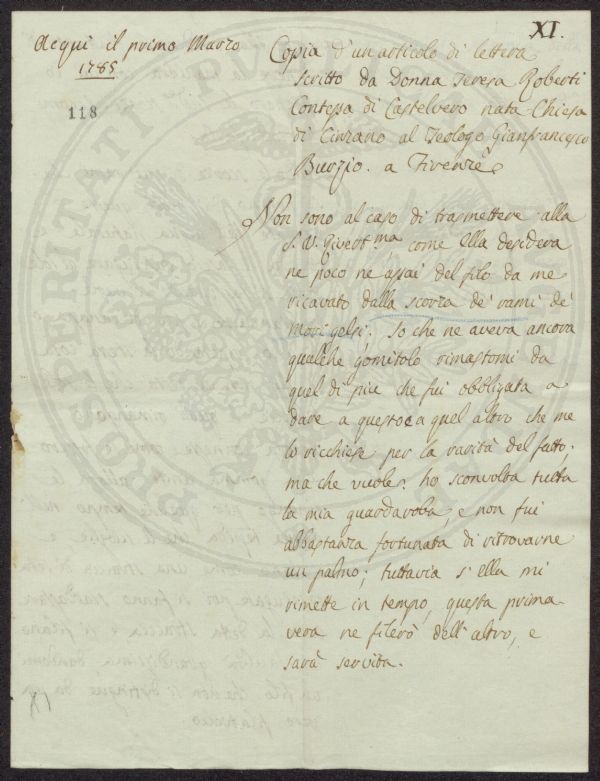 XI.
Acqui il primo Marzo
1785
118
Copia d'un articolo di lettera
scritto da Donna Teresa Roberti
Contessa di Castelvero nata Chiesa
di Cinzano al Teologo Gianfrancesco
Burzio. a Firenze
Non sono al caso di trasmettere alla
S. V. ma come ella desidera
ne poco ne assai del filo da me
ricavato dalla scorza de' rami de'
mori gelsi. So che ne aveva ancora
qualche gomitolo rimastomi da
quel di piu che fui obbligata a
dare a questo o a quel altro che me
lo richiese per la rarità del fatto.
ma che vuole? ho sconvolta tutta
la mia guardaroba, e non fui
abbastanza fortunata di ritrovarne
un palmo; tuttavia s'ella mi
rimette in tempo, questa prima-
vera ne filerò dell'altro, e
sarà servita.
XI